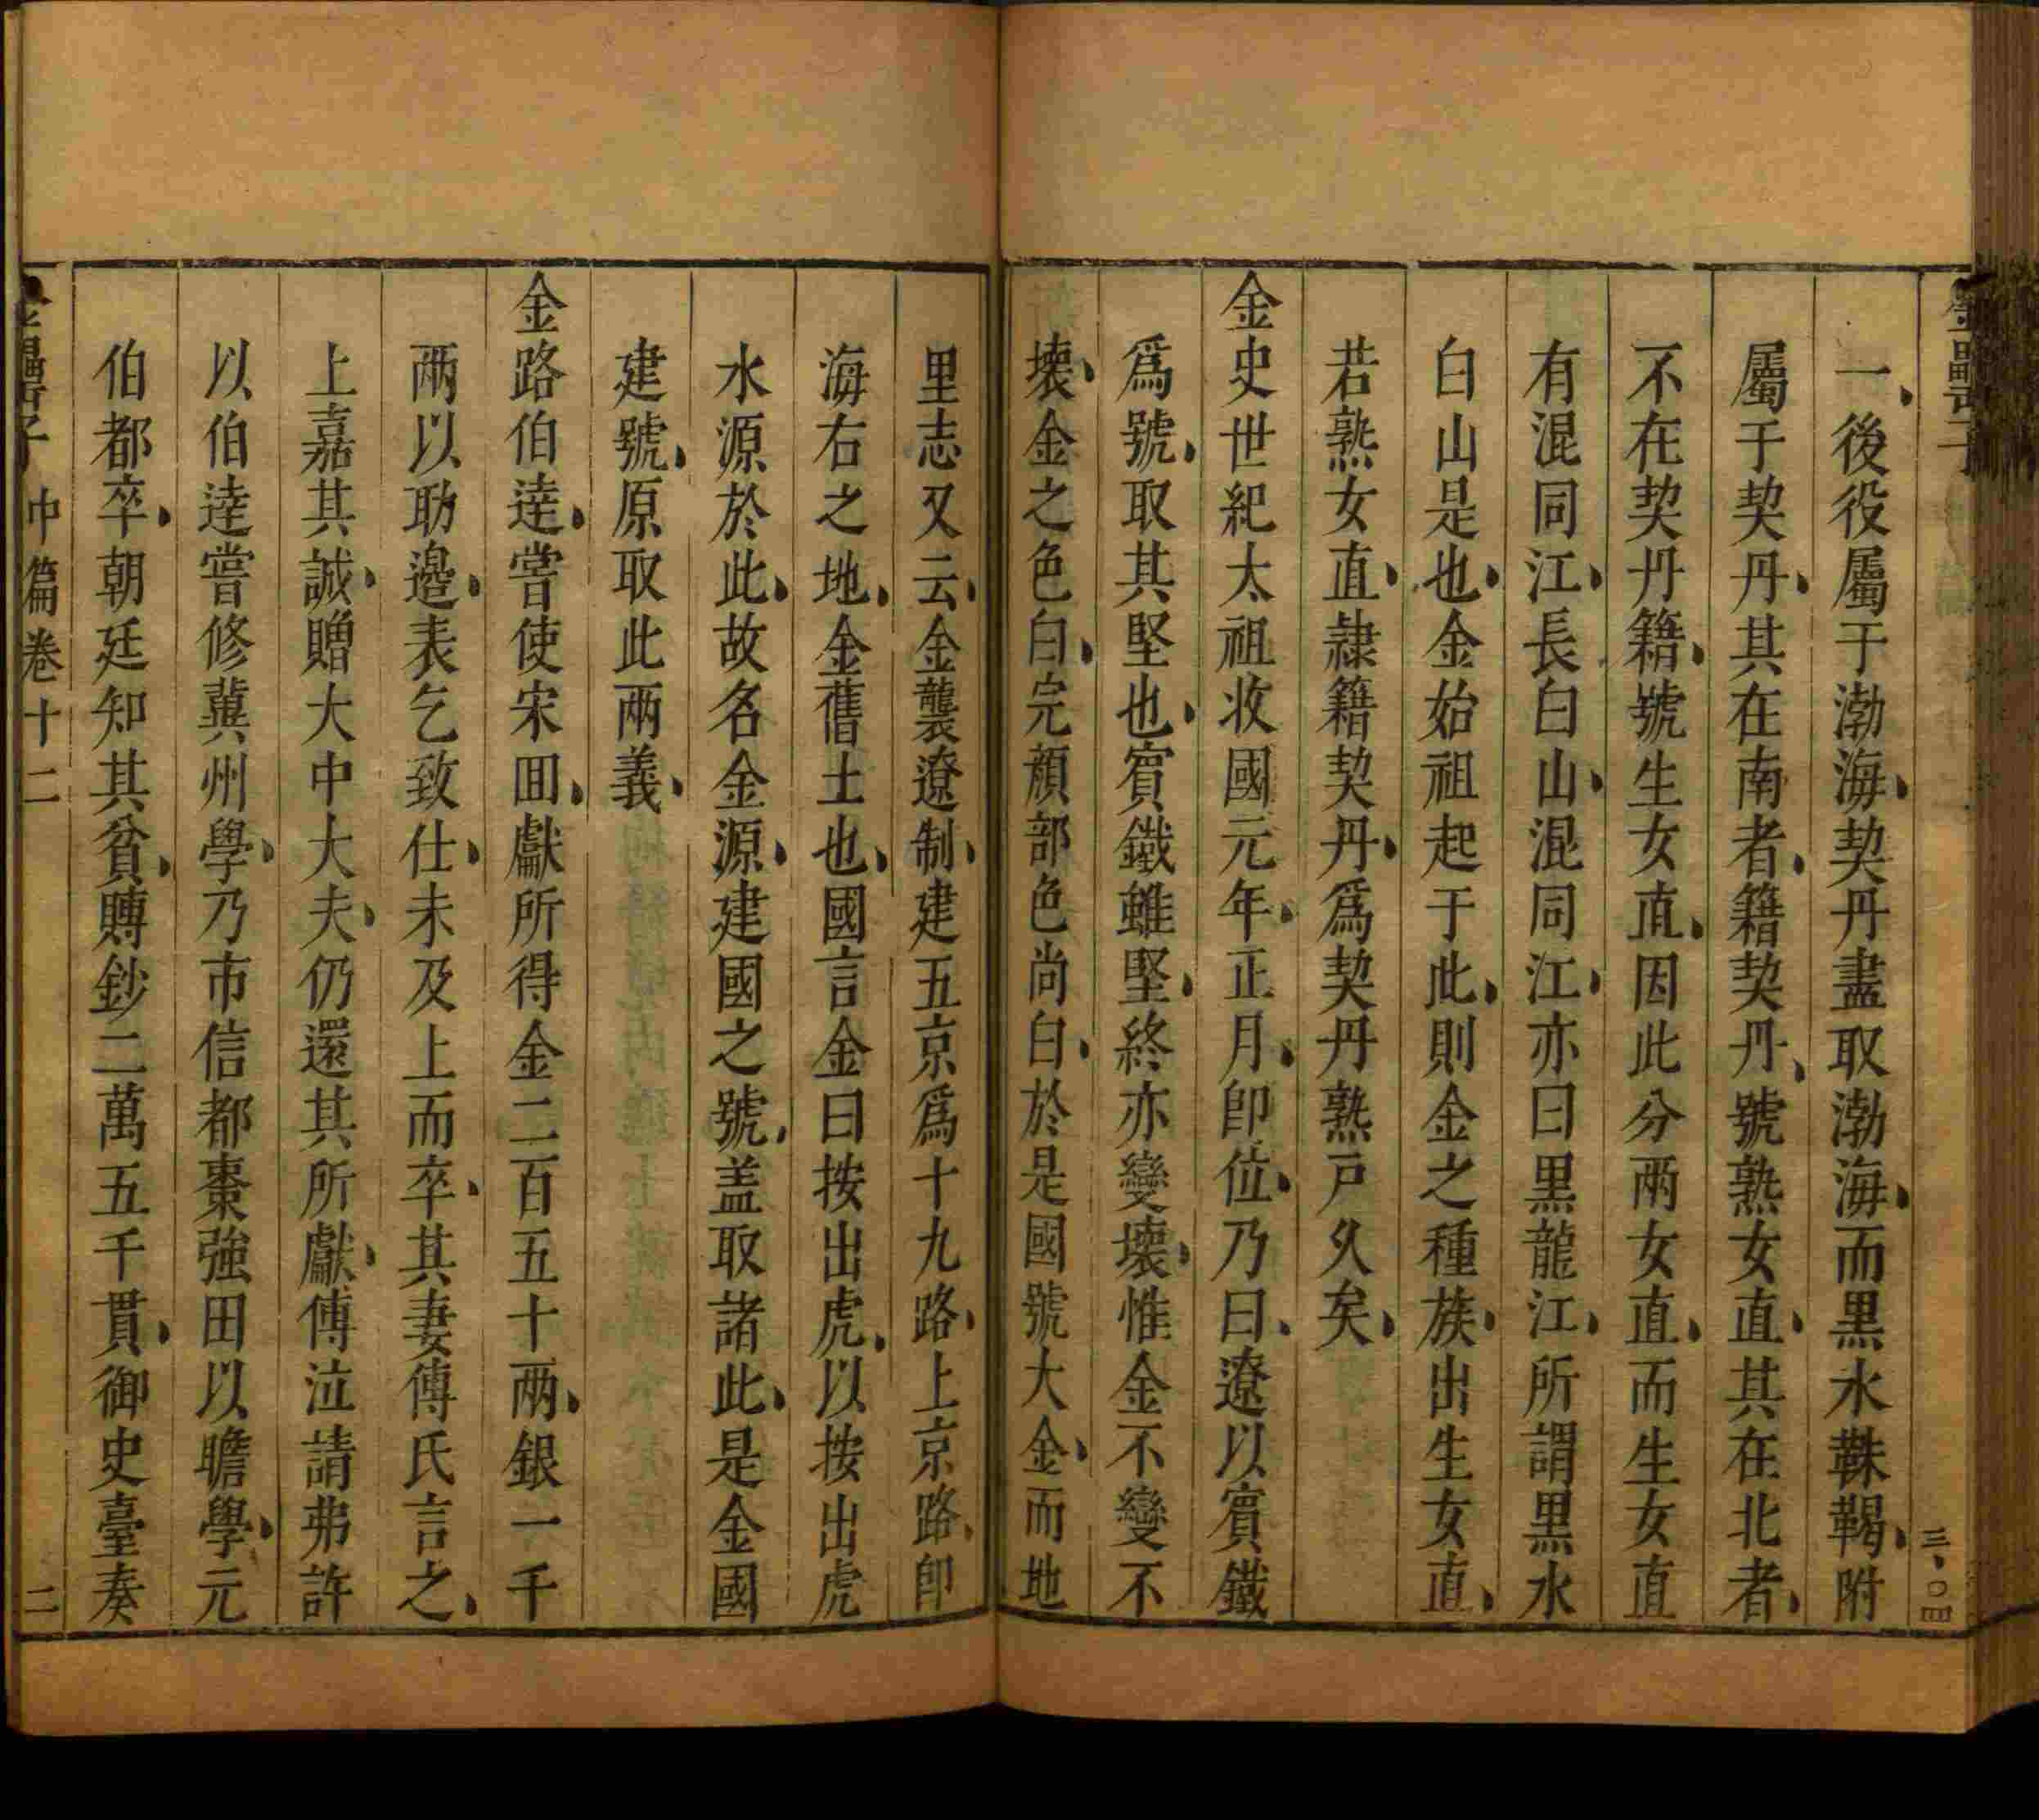 一、後役屬于渤海、契丹盡取渤海、而黑水靺鞨、附
屬于契丹、其在南者、籍契丹、號熟女直、其在北者、
不在契丹籍、號生女直、因此分兩女直、而生女直
有混同江、長白山、混同江、亦曰黑龍江、所謂黑水
白山是也、金始祖起于此、則金之種族、出生女直、
若熟女直、隷籍契丹、爲契丹熟戸久矣、
金史世紀太祖收國元年、正月、卽位、乃曰、遼以賓鐵
爲號、取其堅也、賓鐵雖堅、終亦變壞、惟金不變不
壞、金之色白、完顏部色尚白、於是國號大金、而地
里志又云、金襲遼制、建五京爲十九路、上京路、卽
海右之地、金舊土也、國言金曰按出虎、以按出虎
水源於此、故名金源、建國之號、盖取諸此、是金國
建號、原取此兩義、
金路伯逹、嘗使宋囬、獻所得金二百五十兩、銀一千
兩以助邉、表乞致仕、未及上而卒、其妻傅氏言之、
上嘉其誠、贈大中大夫、仍還其所獻、傅泣請弗許
以伯逹嘗修冀州學、乃市信都棗強田以贍學、元
伯都卒、朝廷知其貧、賻鈔二萬五千貫、御史臺奏
金罍子 中篇卷十二 二